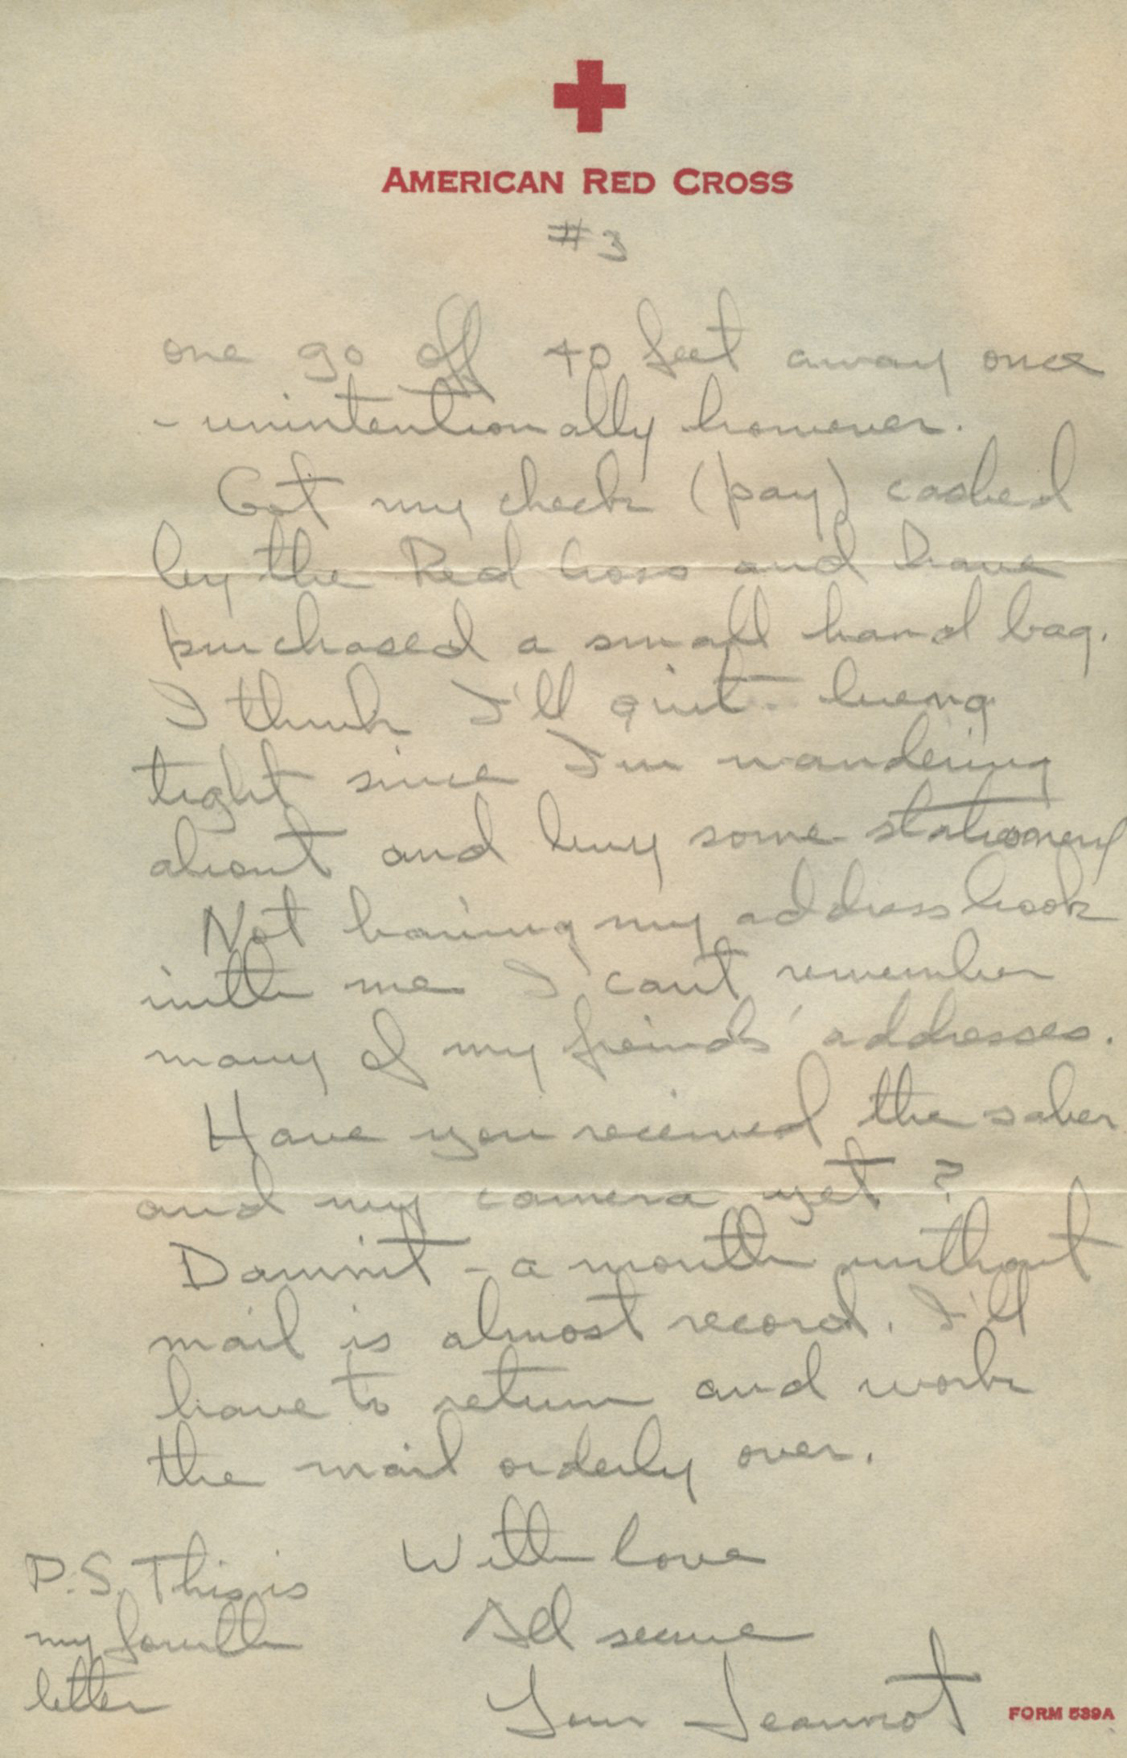 AMERICAN RED CROSS
#3
one go off 40 feet away once
- unintentionally however.
Got my check (pay) cashed
by the Red Cross and have
purchased a small hand bag.
I think I'll quit being
tight since I'm wandering
about and buy some stationery
Not having my address book
with me I can't remember
many of my freinds' addresses.
Have you received the saber
and my camera yet?
Damnit - a month without
mail is almost record. I'll
have to return and work
the mail orderly over.
With love
All secure
Jeannot
P.S. This is
my fourth
letter
FORM 539A